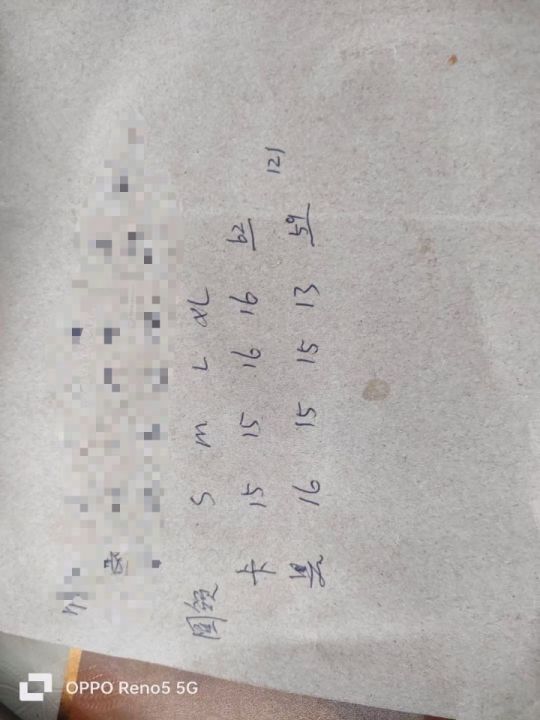 圆领 S M L XL
卡 15 15 16 16 62
黑 16 15 15 13 59
121
OPPO Reno5 5G